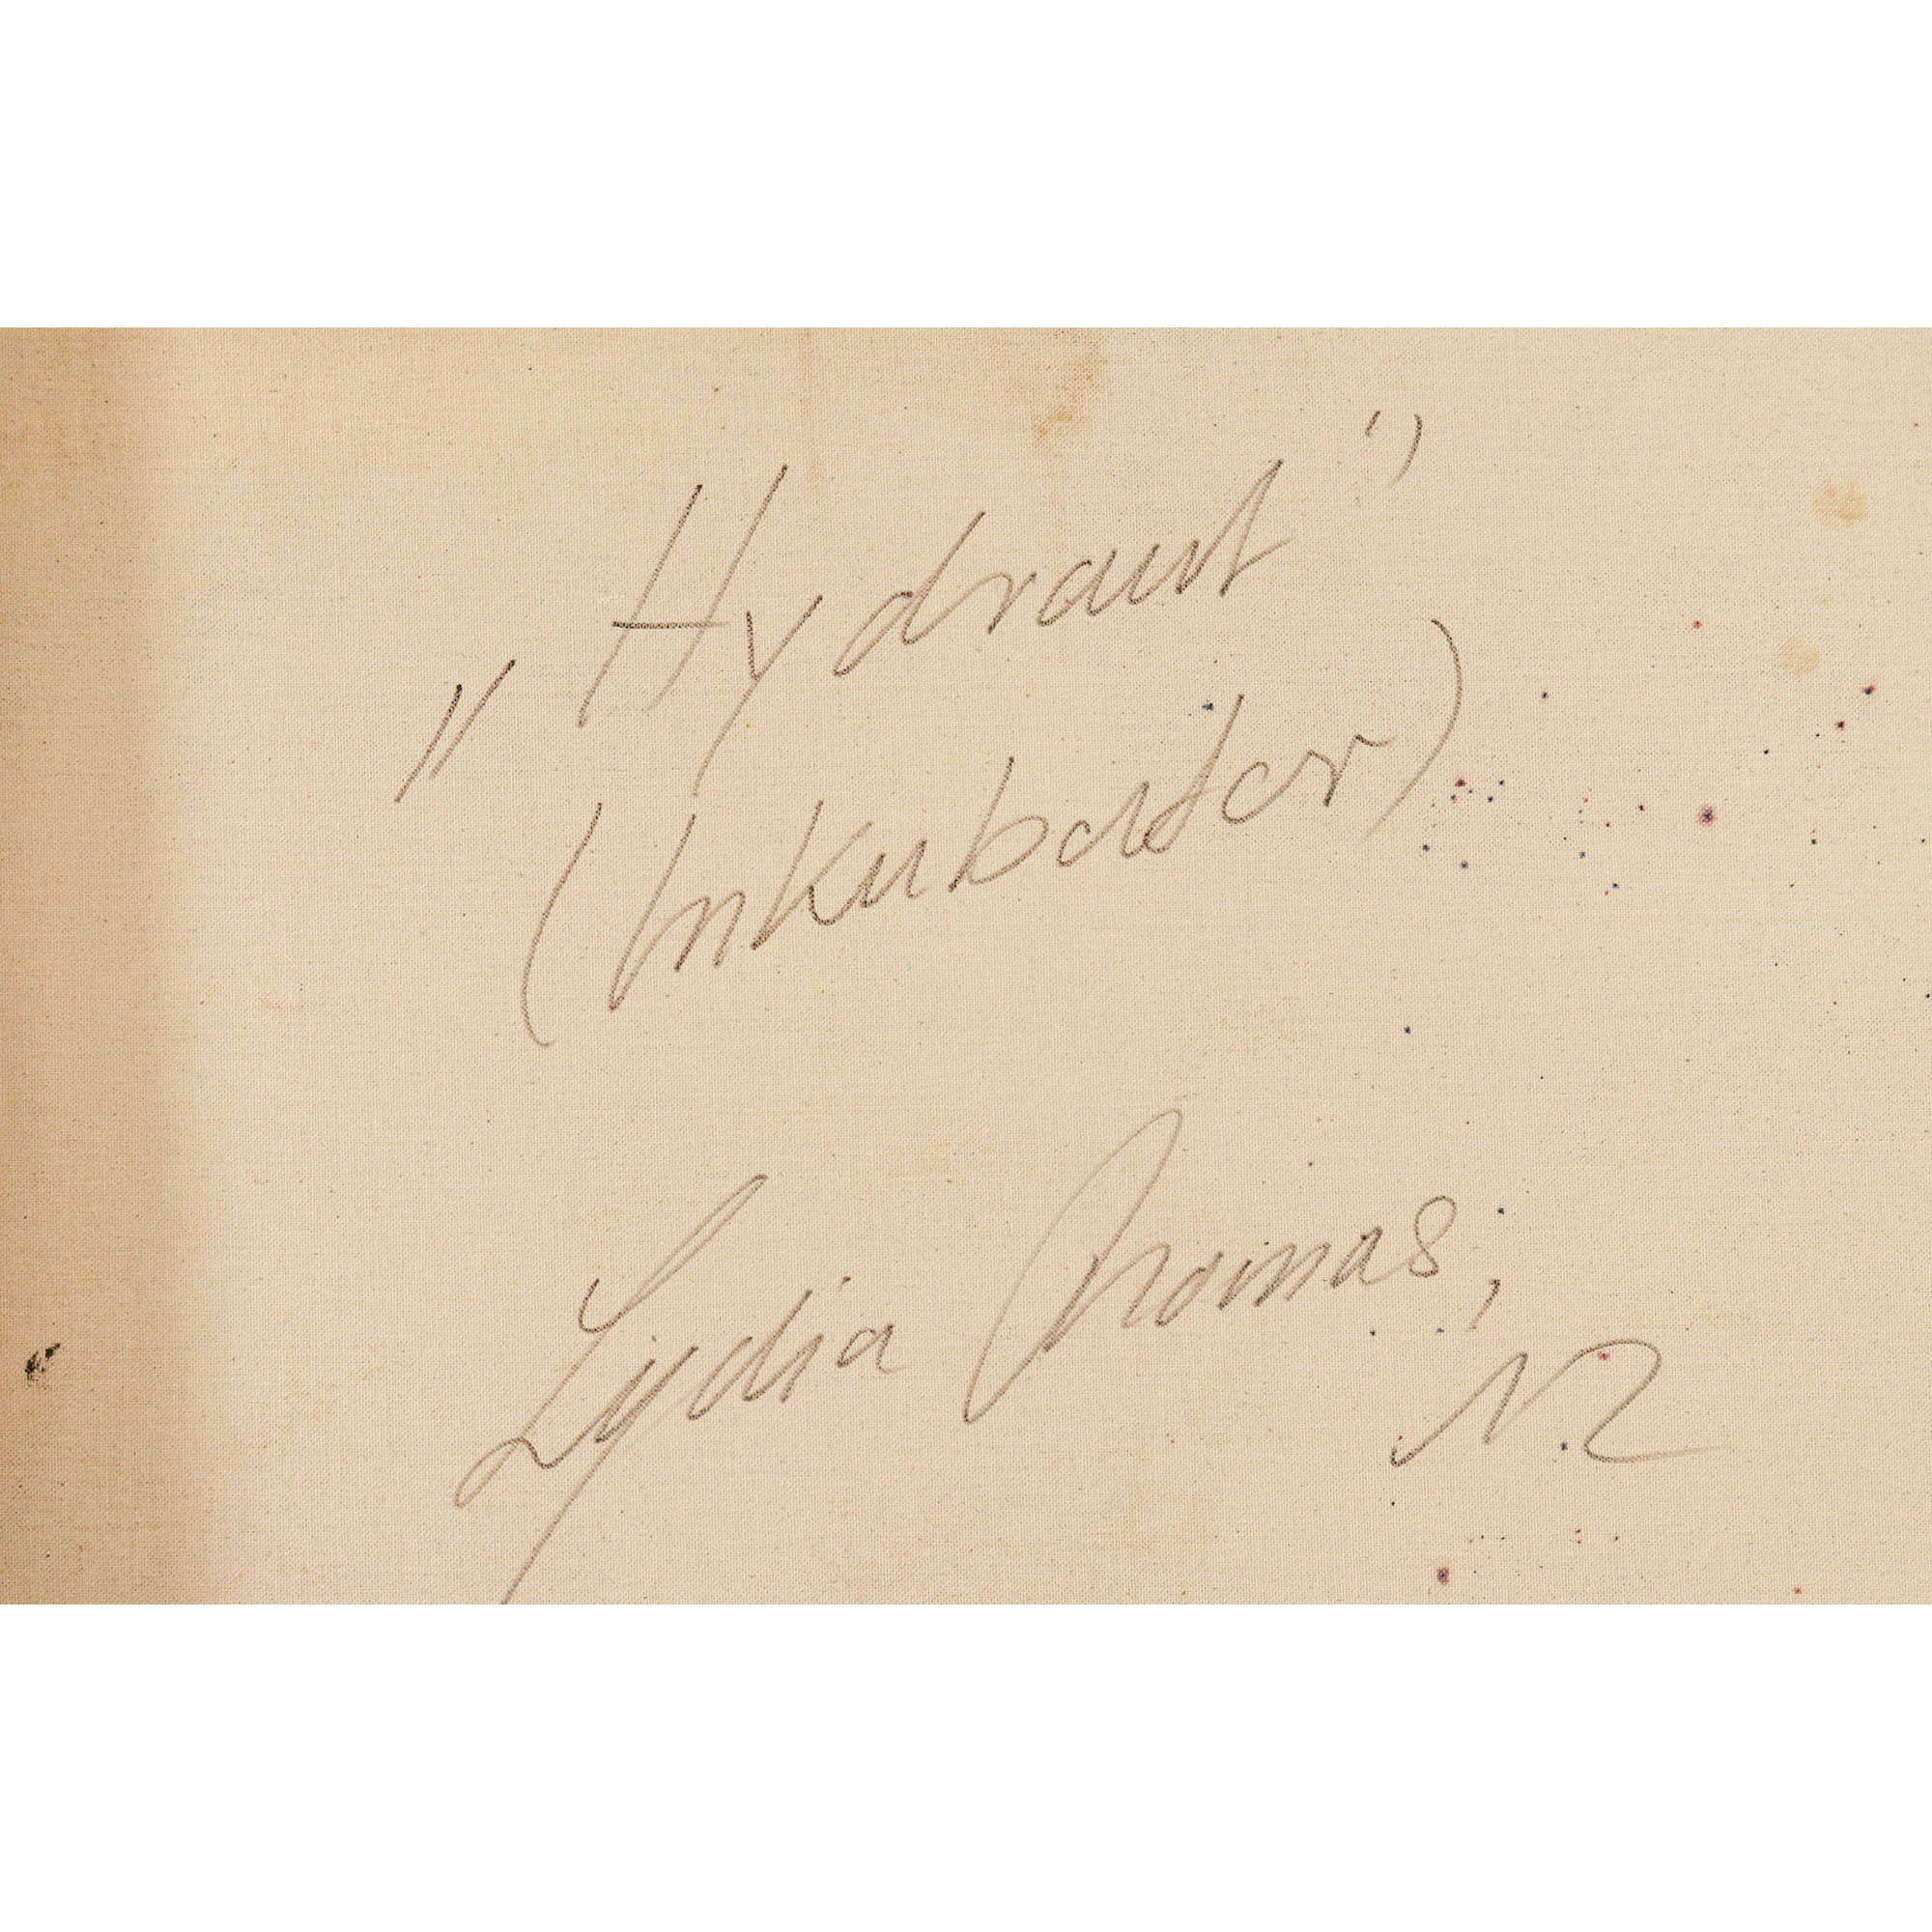 "Hydrant"
(Inkubator)
Lydia Thomas,
NZ